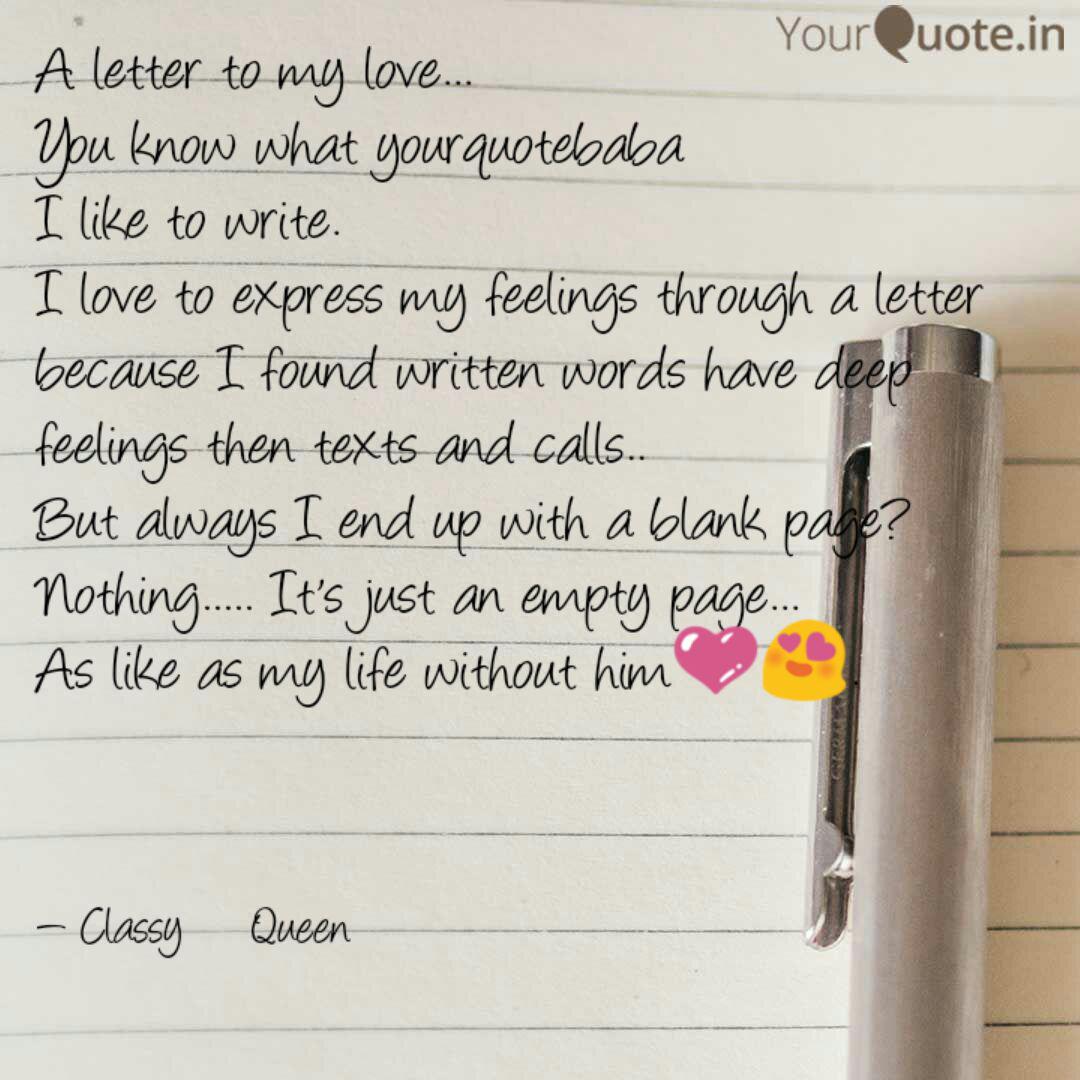 YourQuote.in
A letter to my love...
You know what yourquotebaba
I like to write.
I love to express my feelings through a letter
because I found written words have deep
feelings then texts and calls..
But always I end up with a blank page?
Nothing..... It's just an empty page...
As like as my life without him💗😍
- Classy Queen